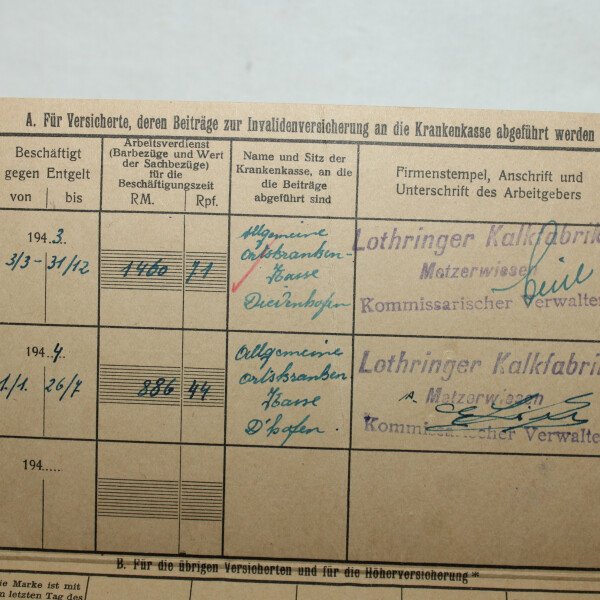 A. Für Versicherte, deren Beiträge zur Invalidenversicherung an die Krankenkasse abgeführt werden
Beschäftigt
gegen Entgelt
von bis
Arbeitsverdienst
(Barbezüge und Wert
der Sachbezüge)
für die
Beschäftigungszeit
RM. Rpf.
Name und Sitz der
Krankenkasse, an die
die Beiträge
abgeführt sind
Firmenstempel, Anschrift und
Unterschrift des Arbeitgebers
194 3.
3/3 - 31/12
1460 71
Allgemeine
Ortskranken-
Kasse
Diedenhofen
Lothringer Kalkfabrik
Metzerwiesen
Kommissarischer Verwalter
194 4.
1./1. 26/7
886 44
Allgemeine
Ortskranken
Kasse
D'hofen.
Lothringer Kalkfabrik
Metzerwiesen
Kommissarischer Verwalter
194.....
B. Für die übrigen Versicherten und für die Höherversicherung*
ie Marke ist mit
m letzten Tag des